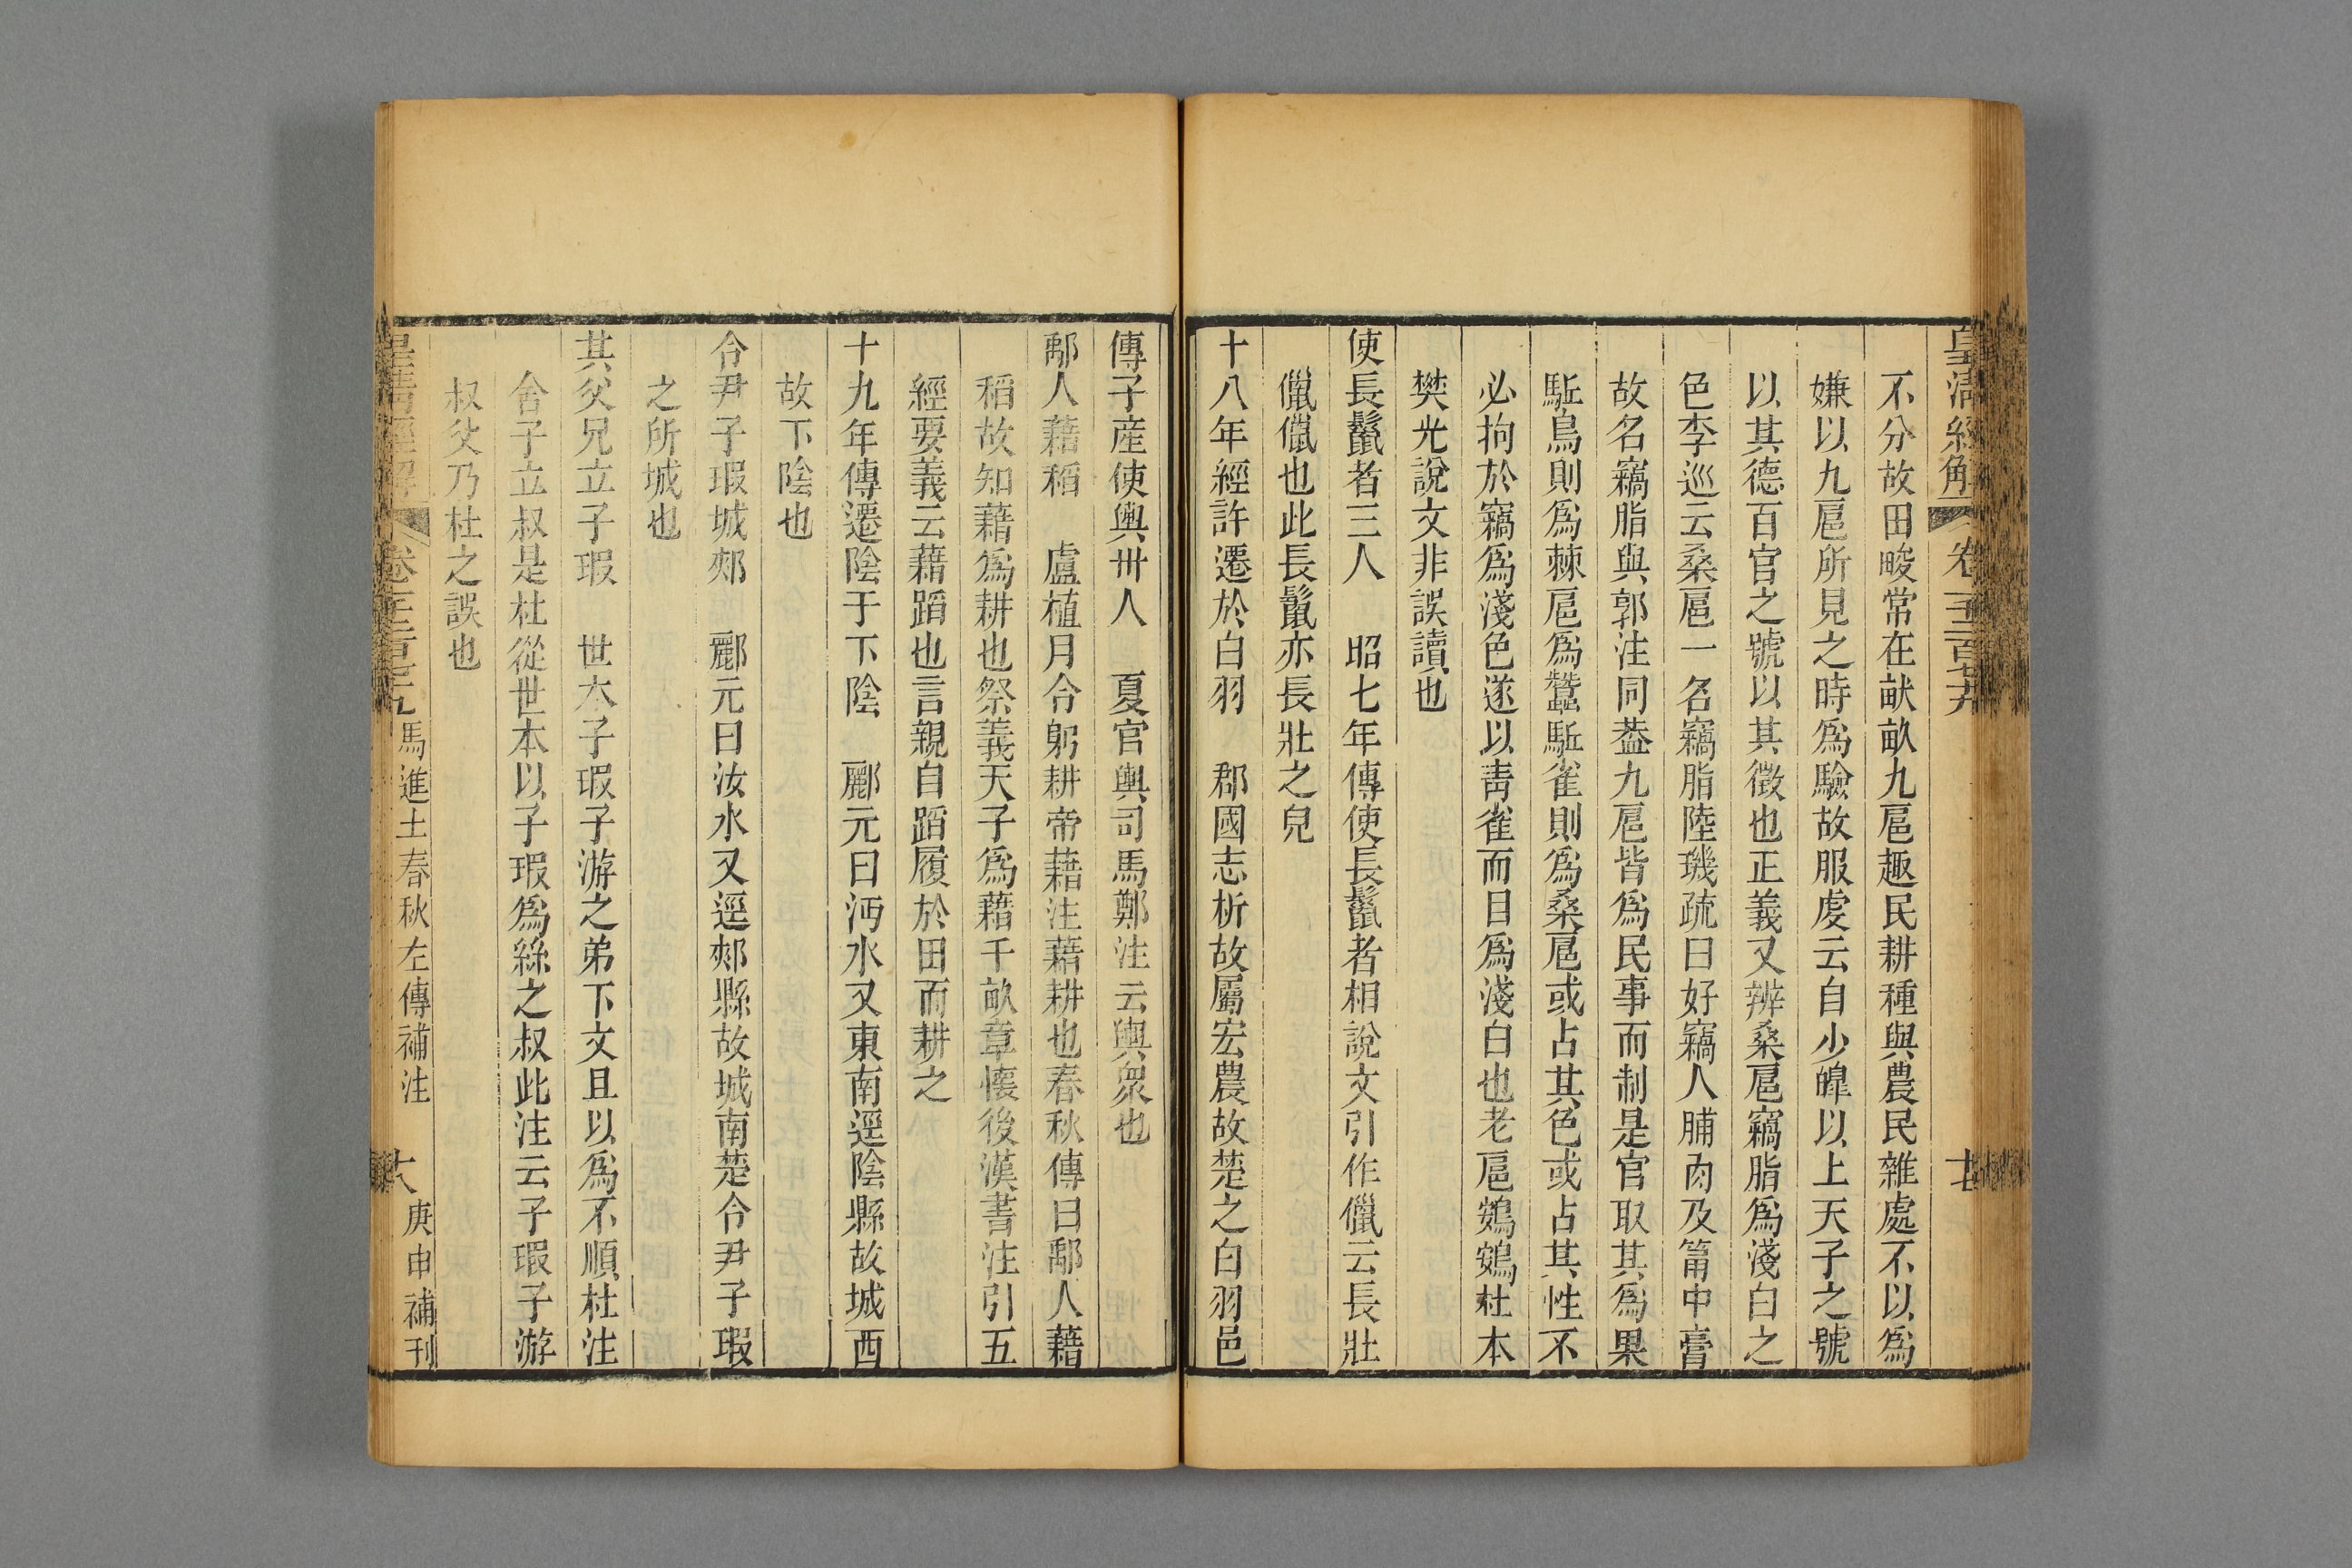 皇清經解 卷一千二百七十九 十七
不分故田畯常在畎畝九扈趣民耕種與農民雜處不以爲
嫌以九扈所見之時爲驗故服虔云自少皞以上天子之號
以其德百官之號以其徵也正義又辨桑扈竊脂爲淺白之
色李巡云桑扈一名竊脂陸璣疏曰好竊人脯肉及筩中膏
故名竊脂與郭注同葢九扈皆爲民事而制是官取其爲果
駈鳥則爲棘扈爲蠶駈雀則爲桑扈或占其色或占其性不
必拘於竊爲淺色遂以靑雀而目爲淺白也老扈鷃鷃杜本
樊光說文非誤讀也
使長鬛者三人 昭七年傳使長鬛者相說文引作儠云長壯
儠儠也此長鬛亦長壯之皃
十八年經許遷於白羽 郡國志析故屬宏農故楚之白羽邑
傳子產使輿卅人 夏官輿司馬鄭注云輿衆也
鄅人藉稻 盧植月令躬耕帝藉注藉耕也春秋傳曰鄅人藉
稻故知藉爲耕也祭義天子爲藉千畝章懷後漢書注引五
經要義云藉蹈也言親自蹈履於田而耕之
十九年傳遷陰于下陰 酈元曰沔水又東南逕陰縣故城西
故下陰也
令尹子瑕城郟 酈元曰汝水又逕郟縣故城南楚令尹子瑕
之所城也
其父兄立子瑕 世本子瑕子游之弟下文且以爲不順杜注
舍子立叔是杜從世本以子瑕爲絲之叔此注云子瑕子游
叔父乃杜之誤也
皇清經解 卷 馬進士春秋左傳補注 大 庚申補刊